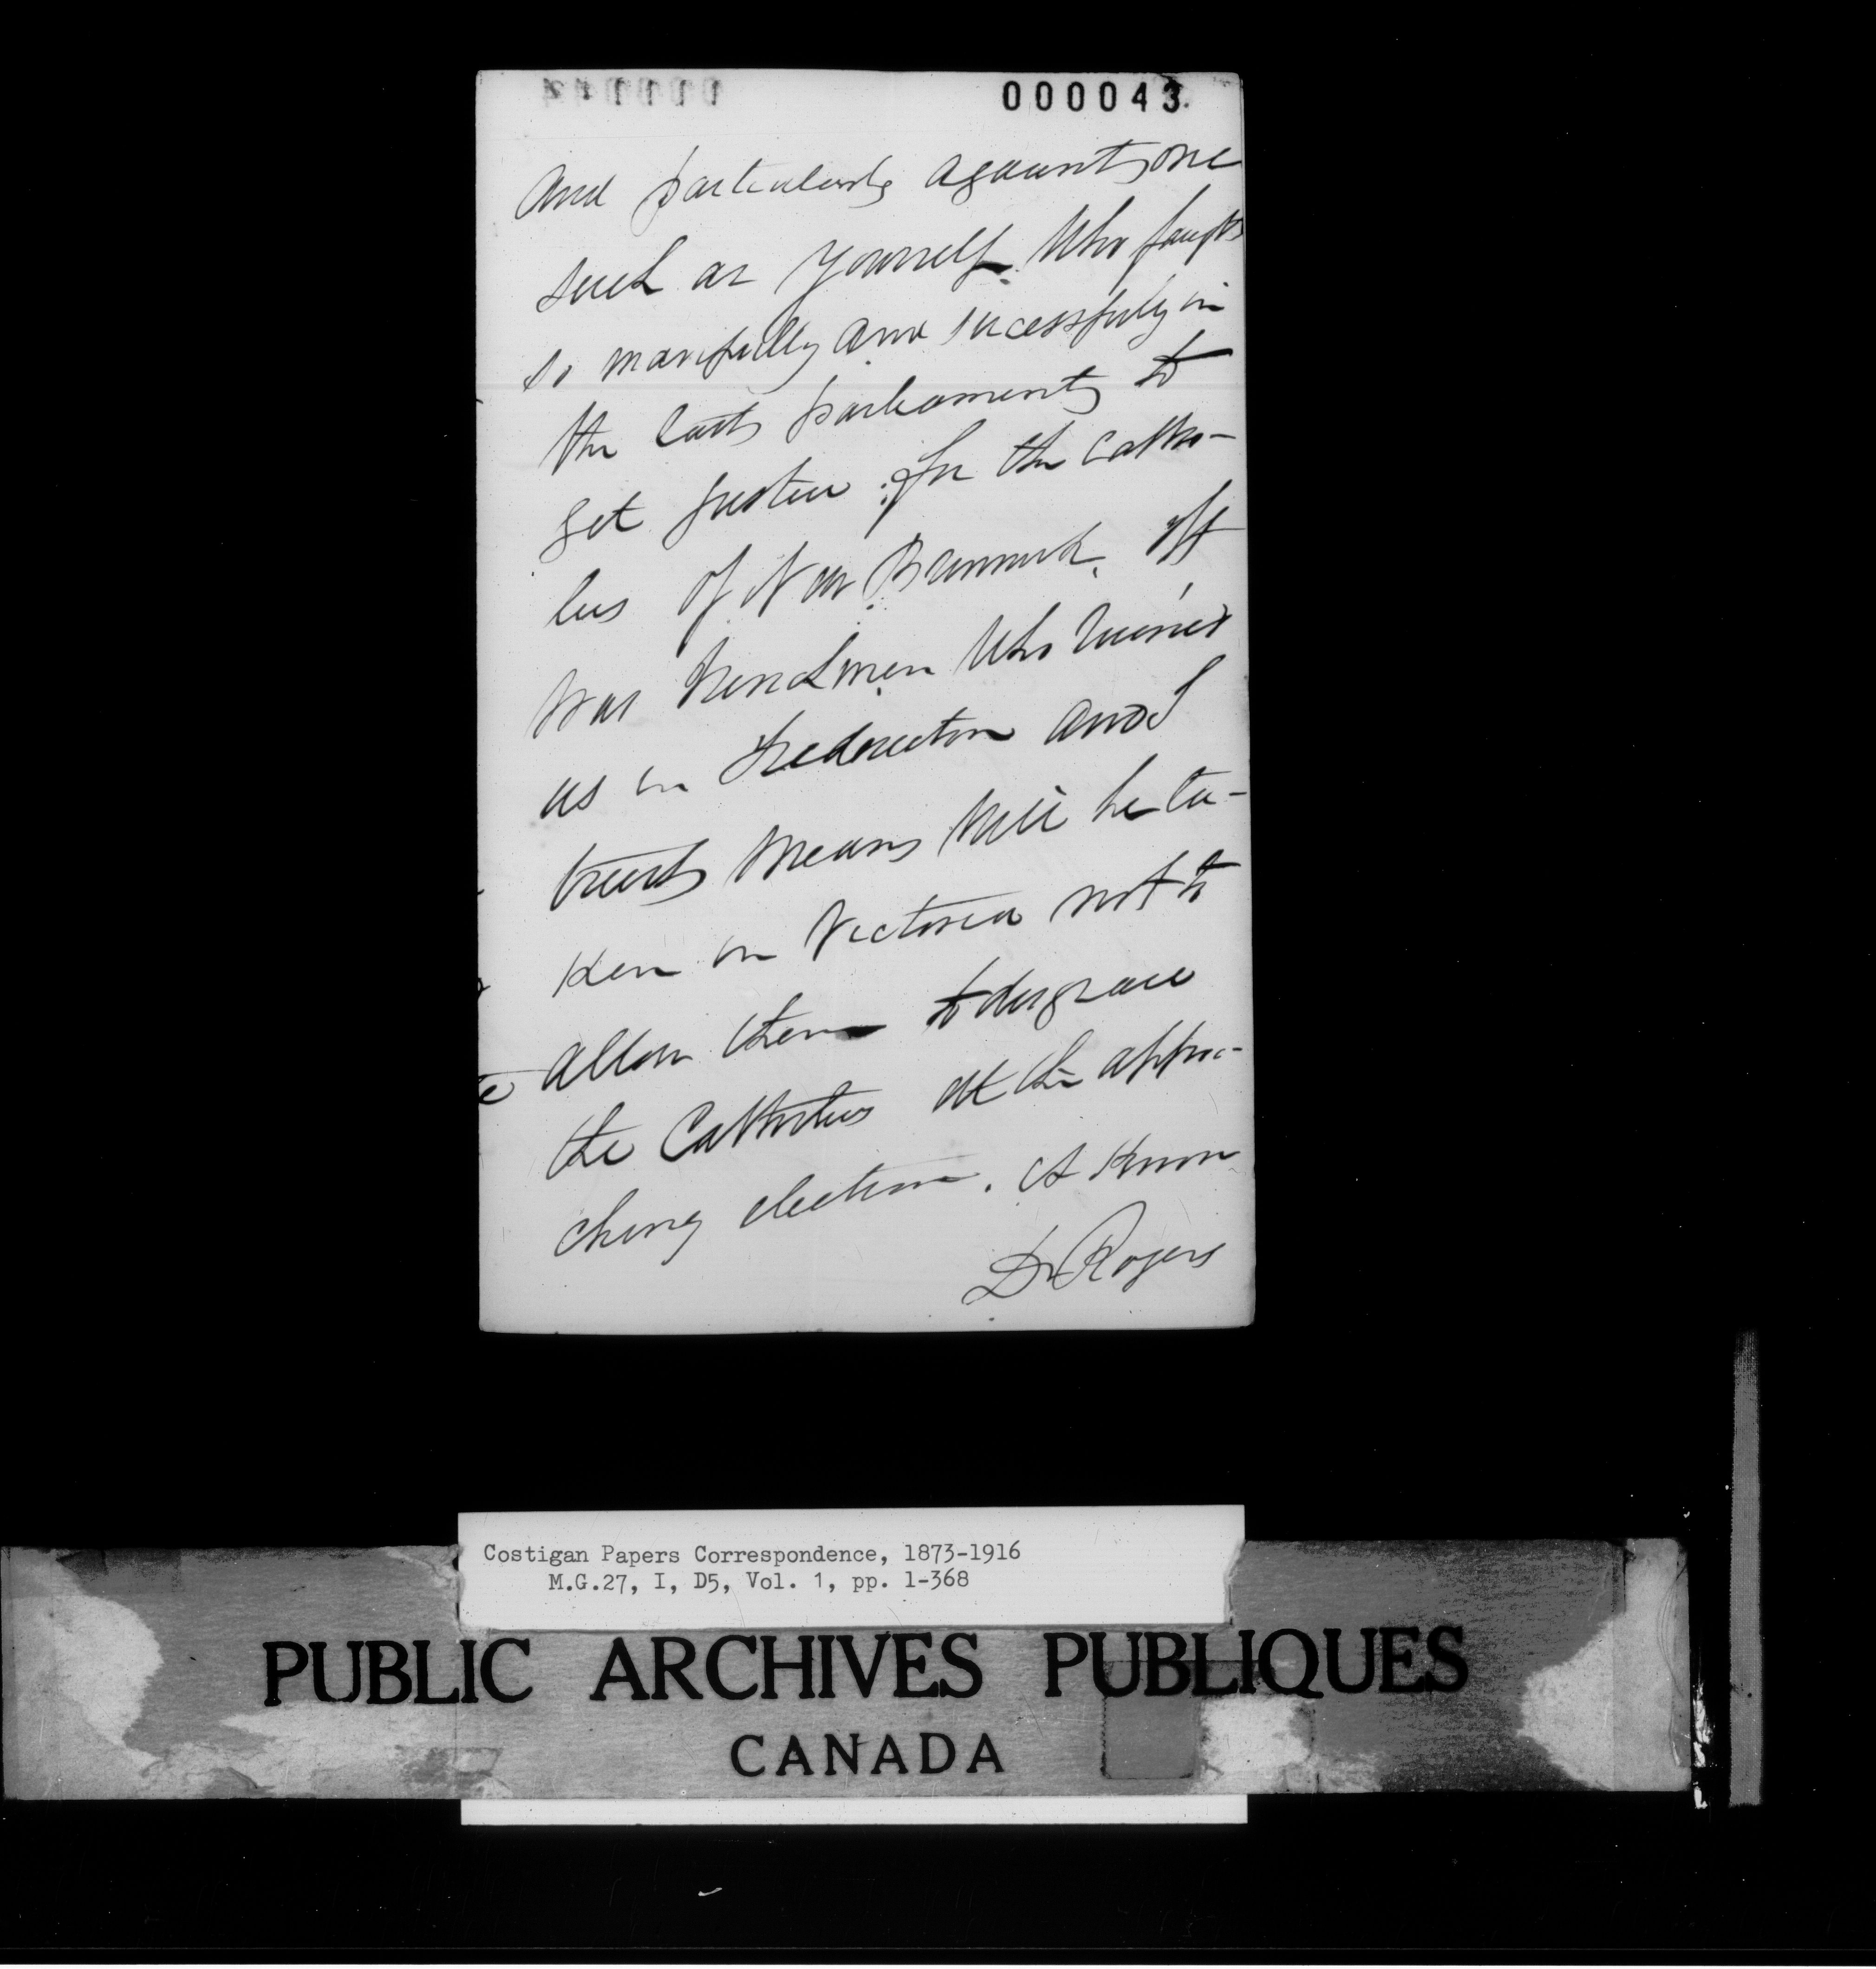 000043
and particularly against one
such as yourself who fought
so manfully and sucessfuly in
the last parliament to
get justice for the catho-
lics of New Brunswick. It
was Frenchmen who ruined
us in Fredericton and I
trust means will be ta-
ken in Victoria not to
allow them to disgrace
the Catholics at the approa-
ching election. I know
Dr Rogers
Costigan Papers Correspondence, 1873-1916
M.G.27, I, D5, Vol. 1, pp. 1-368
PUBLIC ARCHIVES PUBLIQUES
CANADA